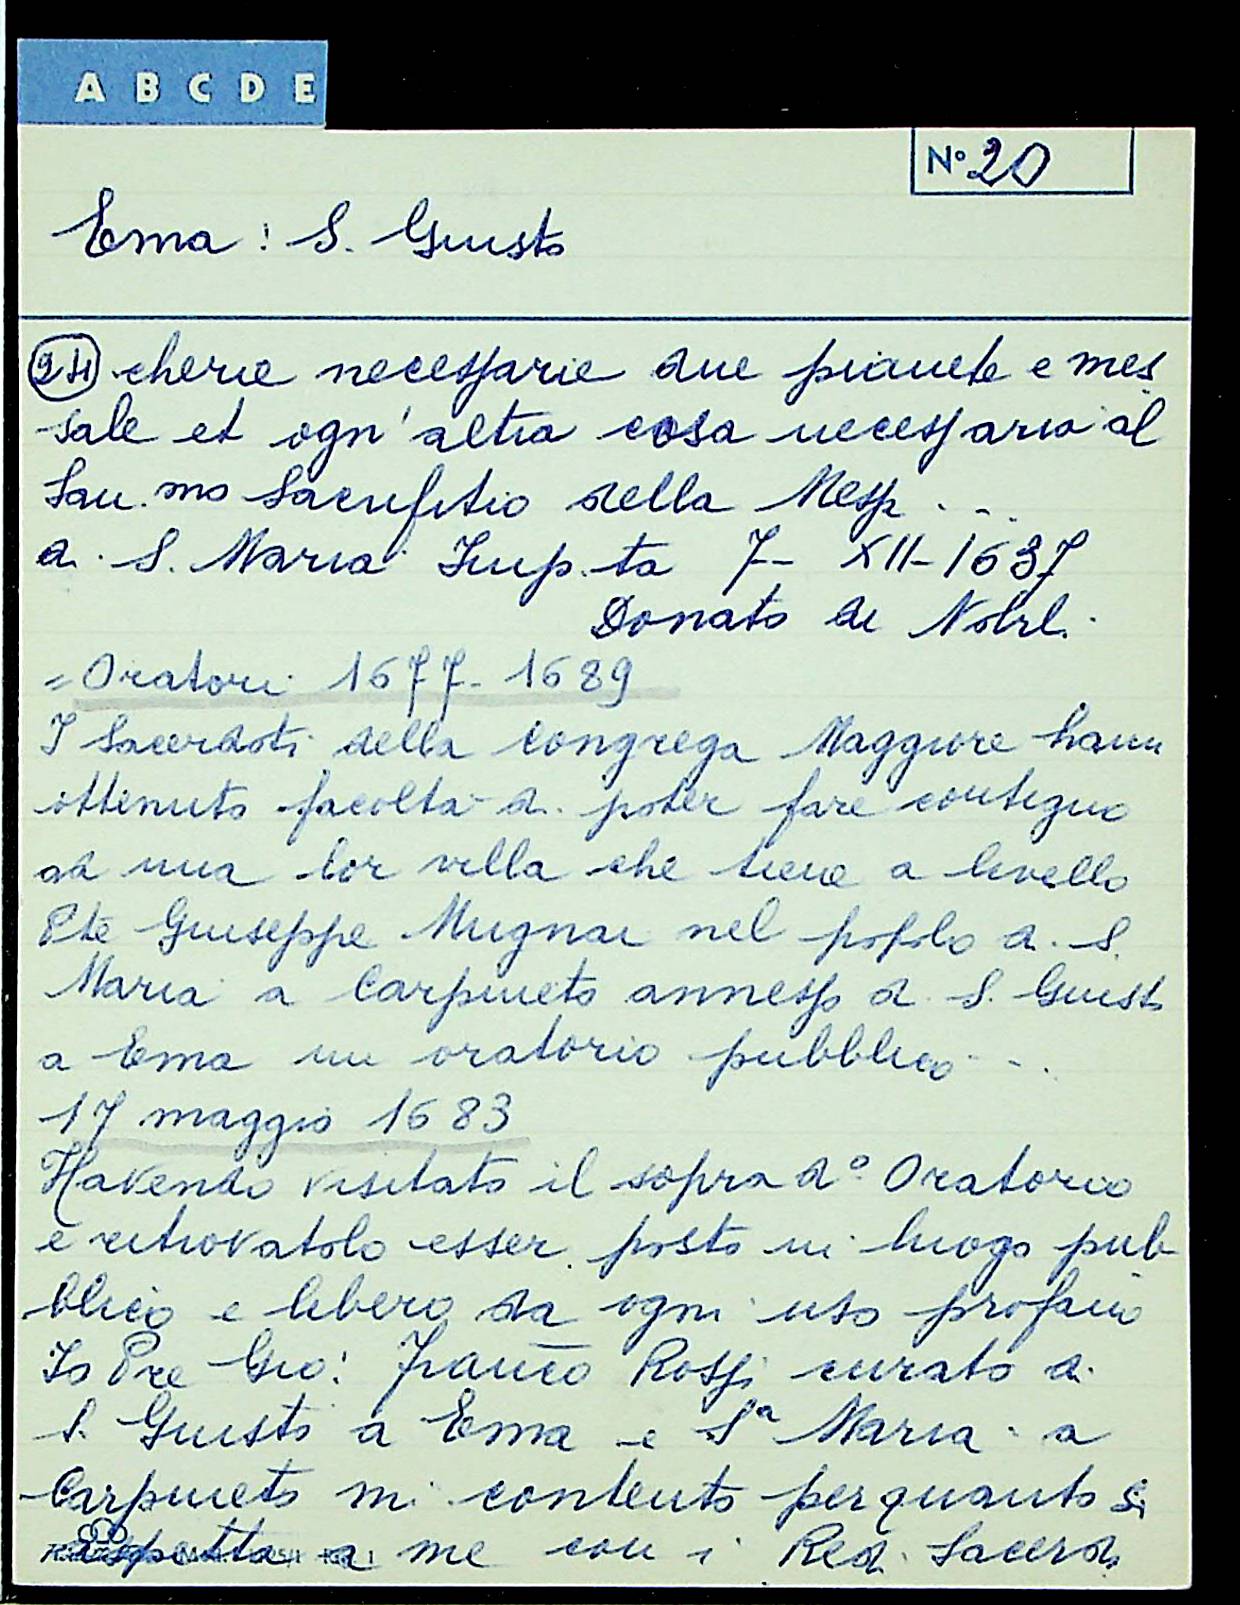 A B C D E
N° 20
Ema : S. Giusto
24 cherie necessarie due pianete e mes
sale et ogn'altra cosa necessaria al
San.mo Sacrifitio della Messa ...
di S. Maria Imp.ta 7- XII-1637
Donato de Nobil.
= Oratori 1677- 1689
I Sacerdoti della Congrega Maggiore hann
ottenuto facoltà di poter fare contiguo
ad una lor villa che tiene a livello
Pte Giuseppe Mugnai nel popolo di S.
Maria a Carpineto annesso di S. Giusto
a Ema un oratorio pubblico ...
17 maggio 1683
Havendo visitato il sopra d° Oratorio
e ritrovatolo esser posto in luogo pub
blico e libero da ogni uso profano
Io Pre Gio: Franco Rossi curato di
S. Giusto a Ema e Sª Maria a
Carpineto mi contento per quanto si
aspetta a me con i Red. Sacerd.